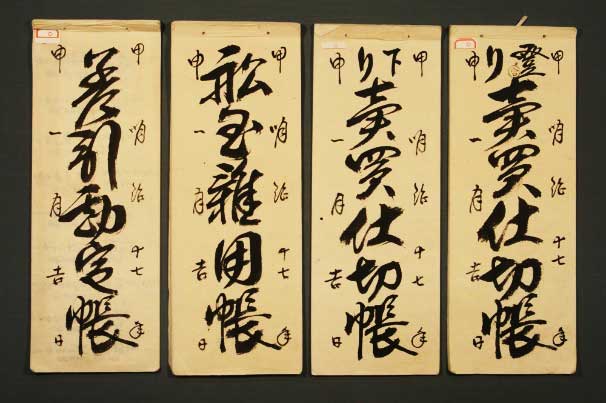 甲 明治十七年
登り賣買仕切帳
申 一月吉日
甲 明治十七年
下り賣買仕切帳
申 一月吉日
甲 明治十七年
舩玉雜用帳
申 一月吉日
甲 明治十七年
差引勘定帳
申 一月吉日